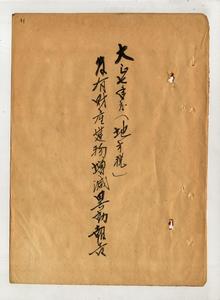 大正七年度（地方税）
官有財産建物増減異動報告